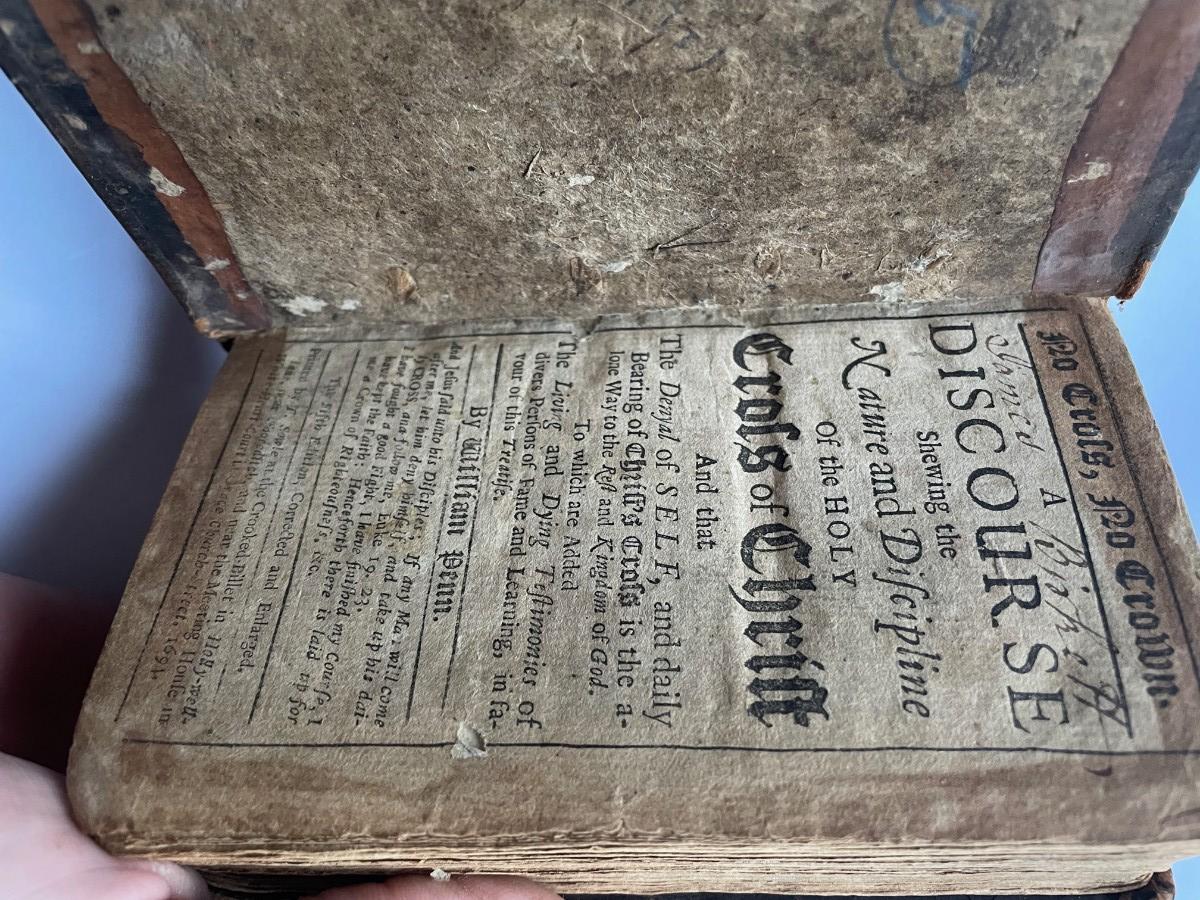 No Croſs, No Crown.
A
DISCOURSE
Shewing the
Nature and Diſcipline
Of the HOLY
Croſs of Chriſt
And that
The Denyal of SELF, and daily
Bearing of Chriſt's Croſs is the a-
lone Way to the Reſt and Kingdom of God.
To which are Added
The Living and Dying Teſtimonies of
divers Perſons of Fame and Learning, in fa-
vour of this Treatiſe.
By William Penn.
And Jeſus ſaid unto his Diſciples; If any Man will come
after me, let him deny himſelf, and take up his dai-
ly CROSS, and follow me, Luke, 19. 23.
I have fought a good Fight, I have finiſhed my Courſe, I
have kept the Faith: Henceforth there is laid up for
me a Crown of Righteouſneſs, &c.
The Fifth Edition, Corrected and Enlarged.
Printed by T. Sowle at the Crooked-Billet in Holy-well-
and near the Meeting Houſe in
1694.